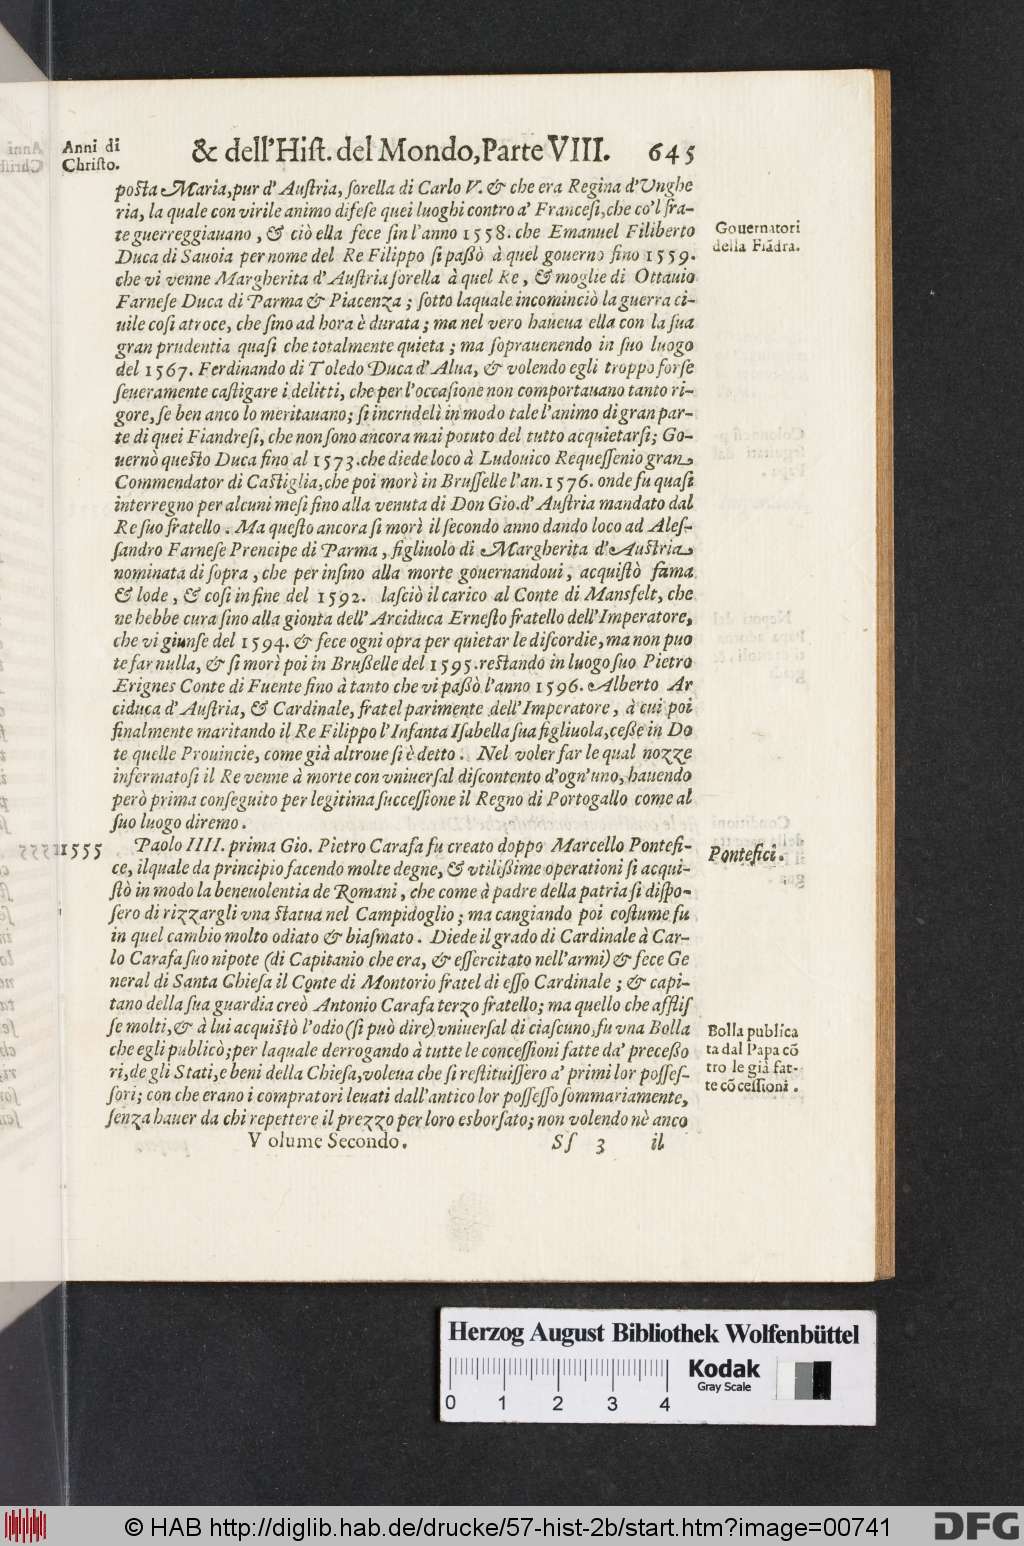 Anni di
Christo.
& dell'Hiſt. del Mondo, Parte VIII. 645
poſta Maria, pur d'Auſtria, ſorella di Carlo V. & che era Regina d'Vnghe
ria, la quale con virile animo difeſe quei luoghi contro a' Franceſi, che co'l fra-
te guerreggiauano, & ciò ella fece ſin l'anno 1558. che Emanuel Filiberto
Duca di Sauoia per nome del Re Filippo ſi paßò à quel gouerno fino 1559.
che vi venne Margherita d'Auſtria ſorella à quel Re, & moglie di Ottauio
Farneſe Duca di Parma & Piacenza; ſotto laquale incominciò la guerra ci-
uile coſi atroce, che ſino ad hora è durata; ma nel vero haueua ella con la ſua
gran prudentia quaſi che totalmente quieta; ma ſoprauenendo in ſuo luogo
del 1567. Ferdinando di Toledo Duca d'Alua, & volendo egli troppo forſe
ſeueramente caſtigare i delitti, che per l'occaſione non comportauano tanto ri-
gore, ſe ben anco lo meritauano; ſi incrudelì in modo tale l'animo di gran par-
te di quei Fiandreſi, che non ſono ancora mai potuto del tutto acquietarſi; Go-
uernò queſto Duca fino al 1573. che diede loco à Ludouico Requeſſenio gran
Commendator di Caſtiglia, che poi morì in Bruſſelle l'an. 1576. onde fu quaſi
interregno per alcuni meſi fino alla venuta di Don Gio. d'Auſtria mandato dal
Re ſuo fratello. Ma queſto ancora ſi morì il ſecondo anno dando loco ad Aleſ-
ſandro Farneſe Prencipe di Parma, figliuolo di Margherita d'Auſtria
nominata di ſopra, che per inſino alla morte gouernandoui, acquiſtò fama
& lode, & coſi in fine del 1592. laſciò il carico al Conte di Mansfelt, che
ne hebbe cura ſino alla gionta dell'Arciduca Erneſto fratello dell'Imperatore,
che vi giunſe del 1594. & fece ogni opra per quietar le diſcordie, ma non puo
te far nulla, & ſi morì poi in Brußelle del 1595. reſtando in luogo ſuo Pietro
Erignes Conte di Fuente fino à tanto che vi paßò l'anno 1596. Alberto Ar
ciduca d'Auſtria, & Cardinale, fratel parimente dell'Imperatore, à cui poi
finalmente maritando il Re Filippo l'Infanta Iſabella ſua figliuola, ceße in Do
te quelle Prouincie, come già altroue ſi è detto. Nel voler far le qual nozze
infermatoſi il Re venne à morte con vniuerſal diſcontento d'ogn'uno, hauendo
però prima conſeguito per legitima ſucceſſione il Regno di Portogallo come al
ſuo luogo diremo.
Gouernatori
della Fiãdra.
1555 Paolo IIII. prima Gio. Pietro Carafa fu creato doppo Marcello Pontefi-
ce, ilquale da principio facendo molte degne, & vtilißime operationi ſi acqui-
ſtò in modo la beneuolentia de Romani, che come à padre della patria ſi diſpo-
ſero di rizzargli vna ſtatua nel Campidoglio; ma cangiando poi coſtume fu
in quel cambio molto odiato & biaſmato. Diede il grado di Cardinale à Car-
lo Carafa ſuo nipote (di Capitanio che era, & eſſercitato nell'armi) & fece Ge
neral di Santa Chieſa il Conte di Montorio fratel di eſſo Cardinale; & capi-
tano della ſua guardia creò Antonio Carafa terzo fratello; ma quello che affliſ
ſe molti, & à lui acquiſtò l'odio (ſi può dire) vniuerſal di ciaſcuno, fu vna Bolla
che egli publicò; per laquale derrogando à tutte le conceſſioni fatte da' preceßo
ri, de gli Stati, e beni della Chieſa, voleua che ſi reſtituiſſero a' primi lor poſſeſ-
ſori; con che erano i compratori leuati dall'antico lor poſſeſſo ſommariamente,
ſenza hauer da chi repettere il prezzo per loro esborſato; non volendo nè anco
Pontefici.
Bolla publica
ta dal Papa cõ
tro le già fat-
te cõceſſioni.
Volume Secondo. Sſ 3 il
Herzog August Bibliothek Wolfenbüttel
0 1 2 3 4
Kodak
Gray Scale
© HAB http://diglib.hab.de/drucke/57-hist-2b/start.htm?image=00741
DFG